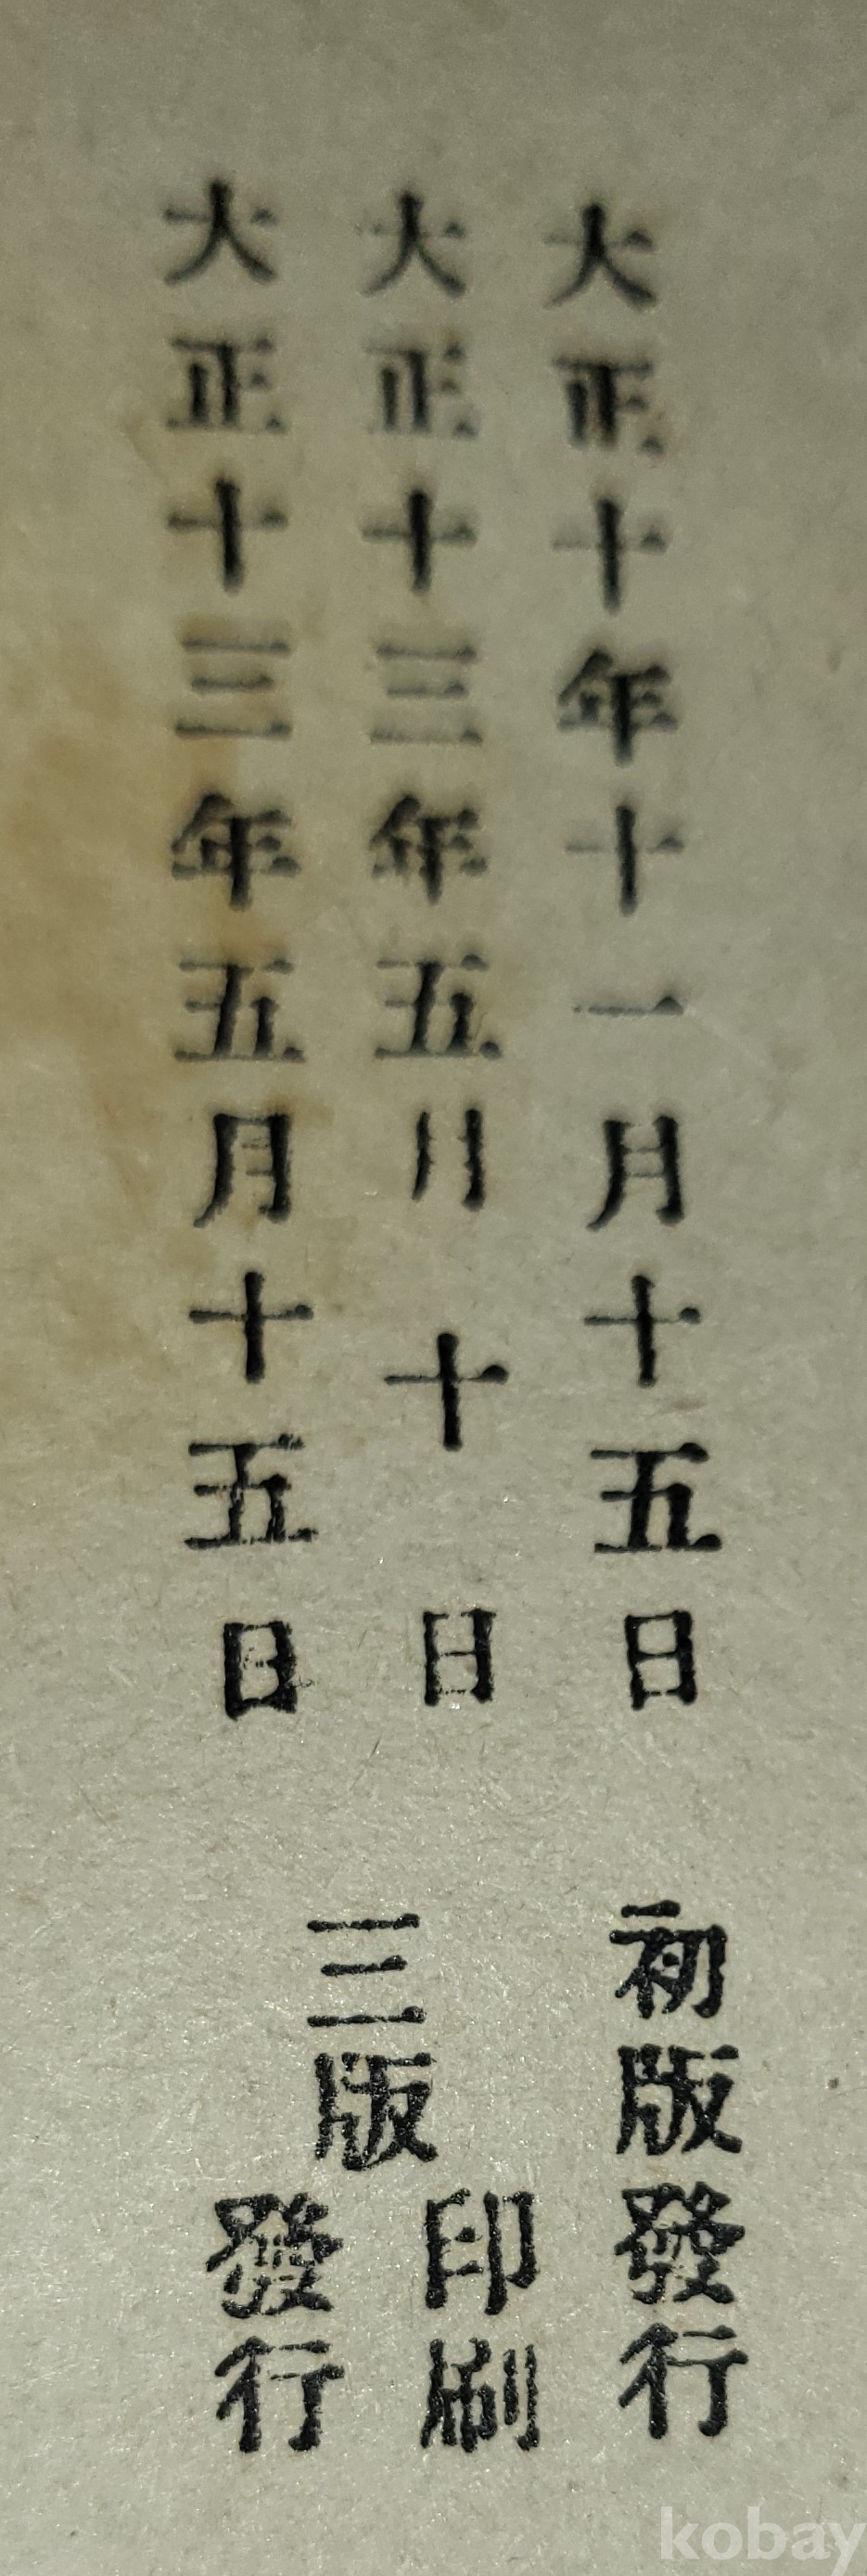 大正十年十一月十五日 初版發行
大正十三年五月十日 三版印刷
大正十三年五月十五日 發行
kobay